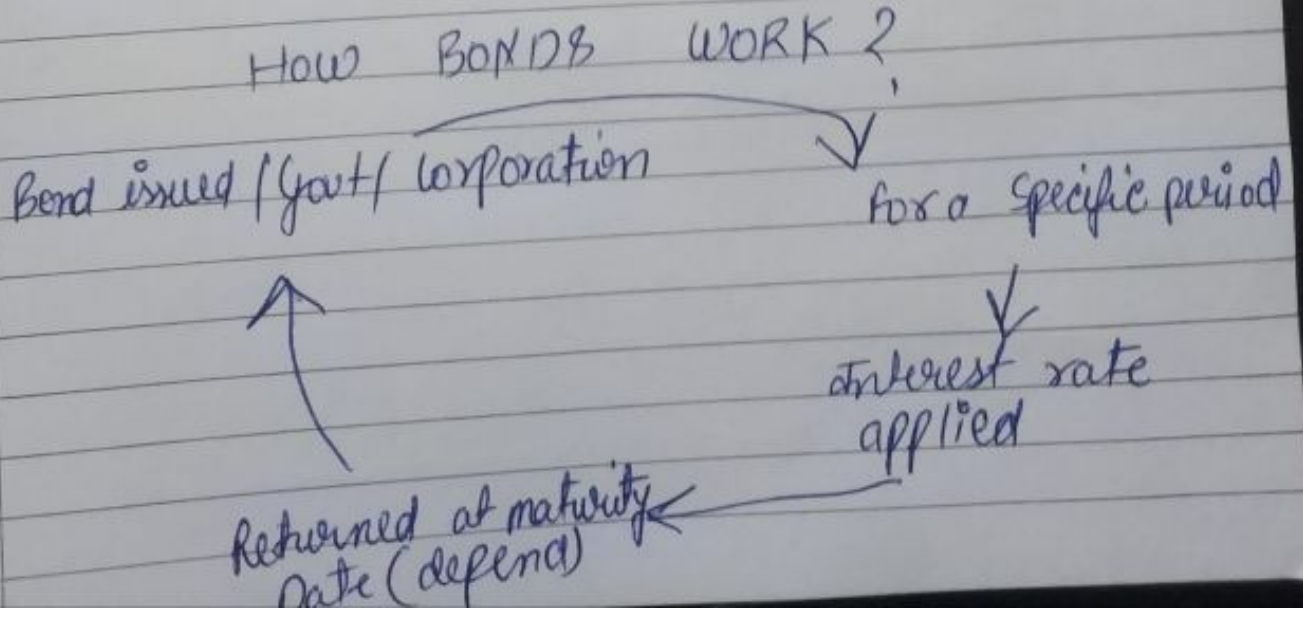 HOW BONDS WORK ?
Bond issued / Govt / Corporation
for a specific period
Interest rate
applied
Returned at maturity
Date (depend)